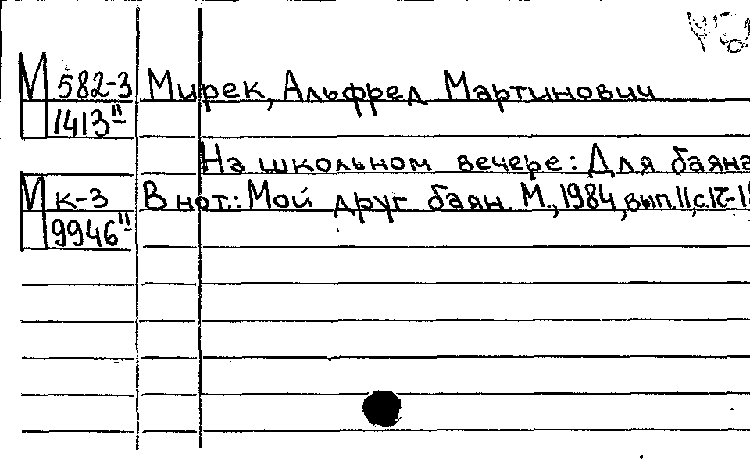 М 582-3 Мирек, Альфред Мартинович
1413"
На школьном вечере: Для баяна
М к-3 В нот.: Мой друг баян. М., 1984, вып. 11,
9946"